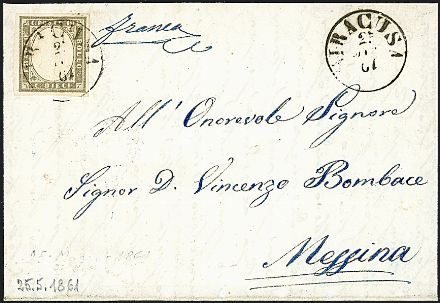 franca
SIRACUSA
61
All' Onorevole Signore
Signor D. Vincenzo Bombace
Messina
25.5.1861